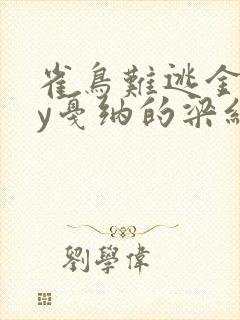 雀鳥難逃金
y戛纳的梁
劉學偉